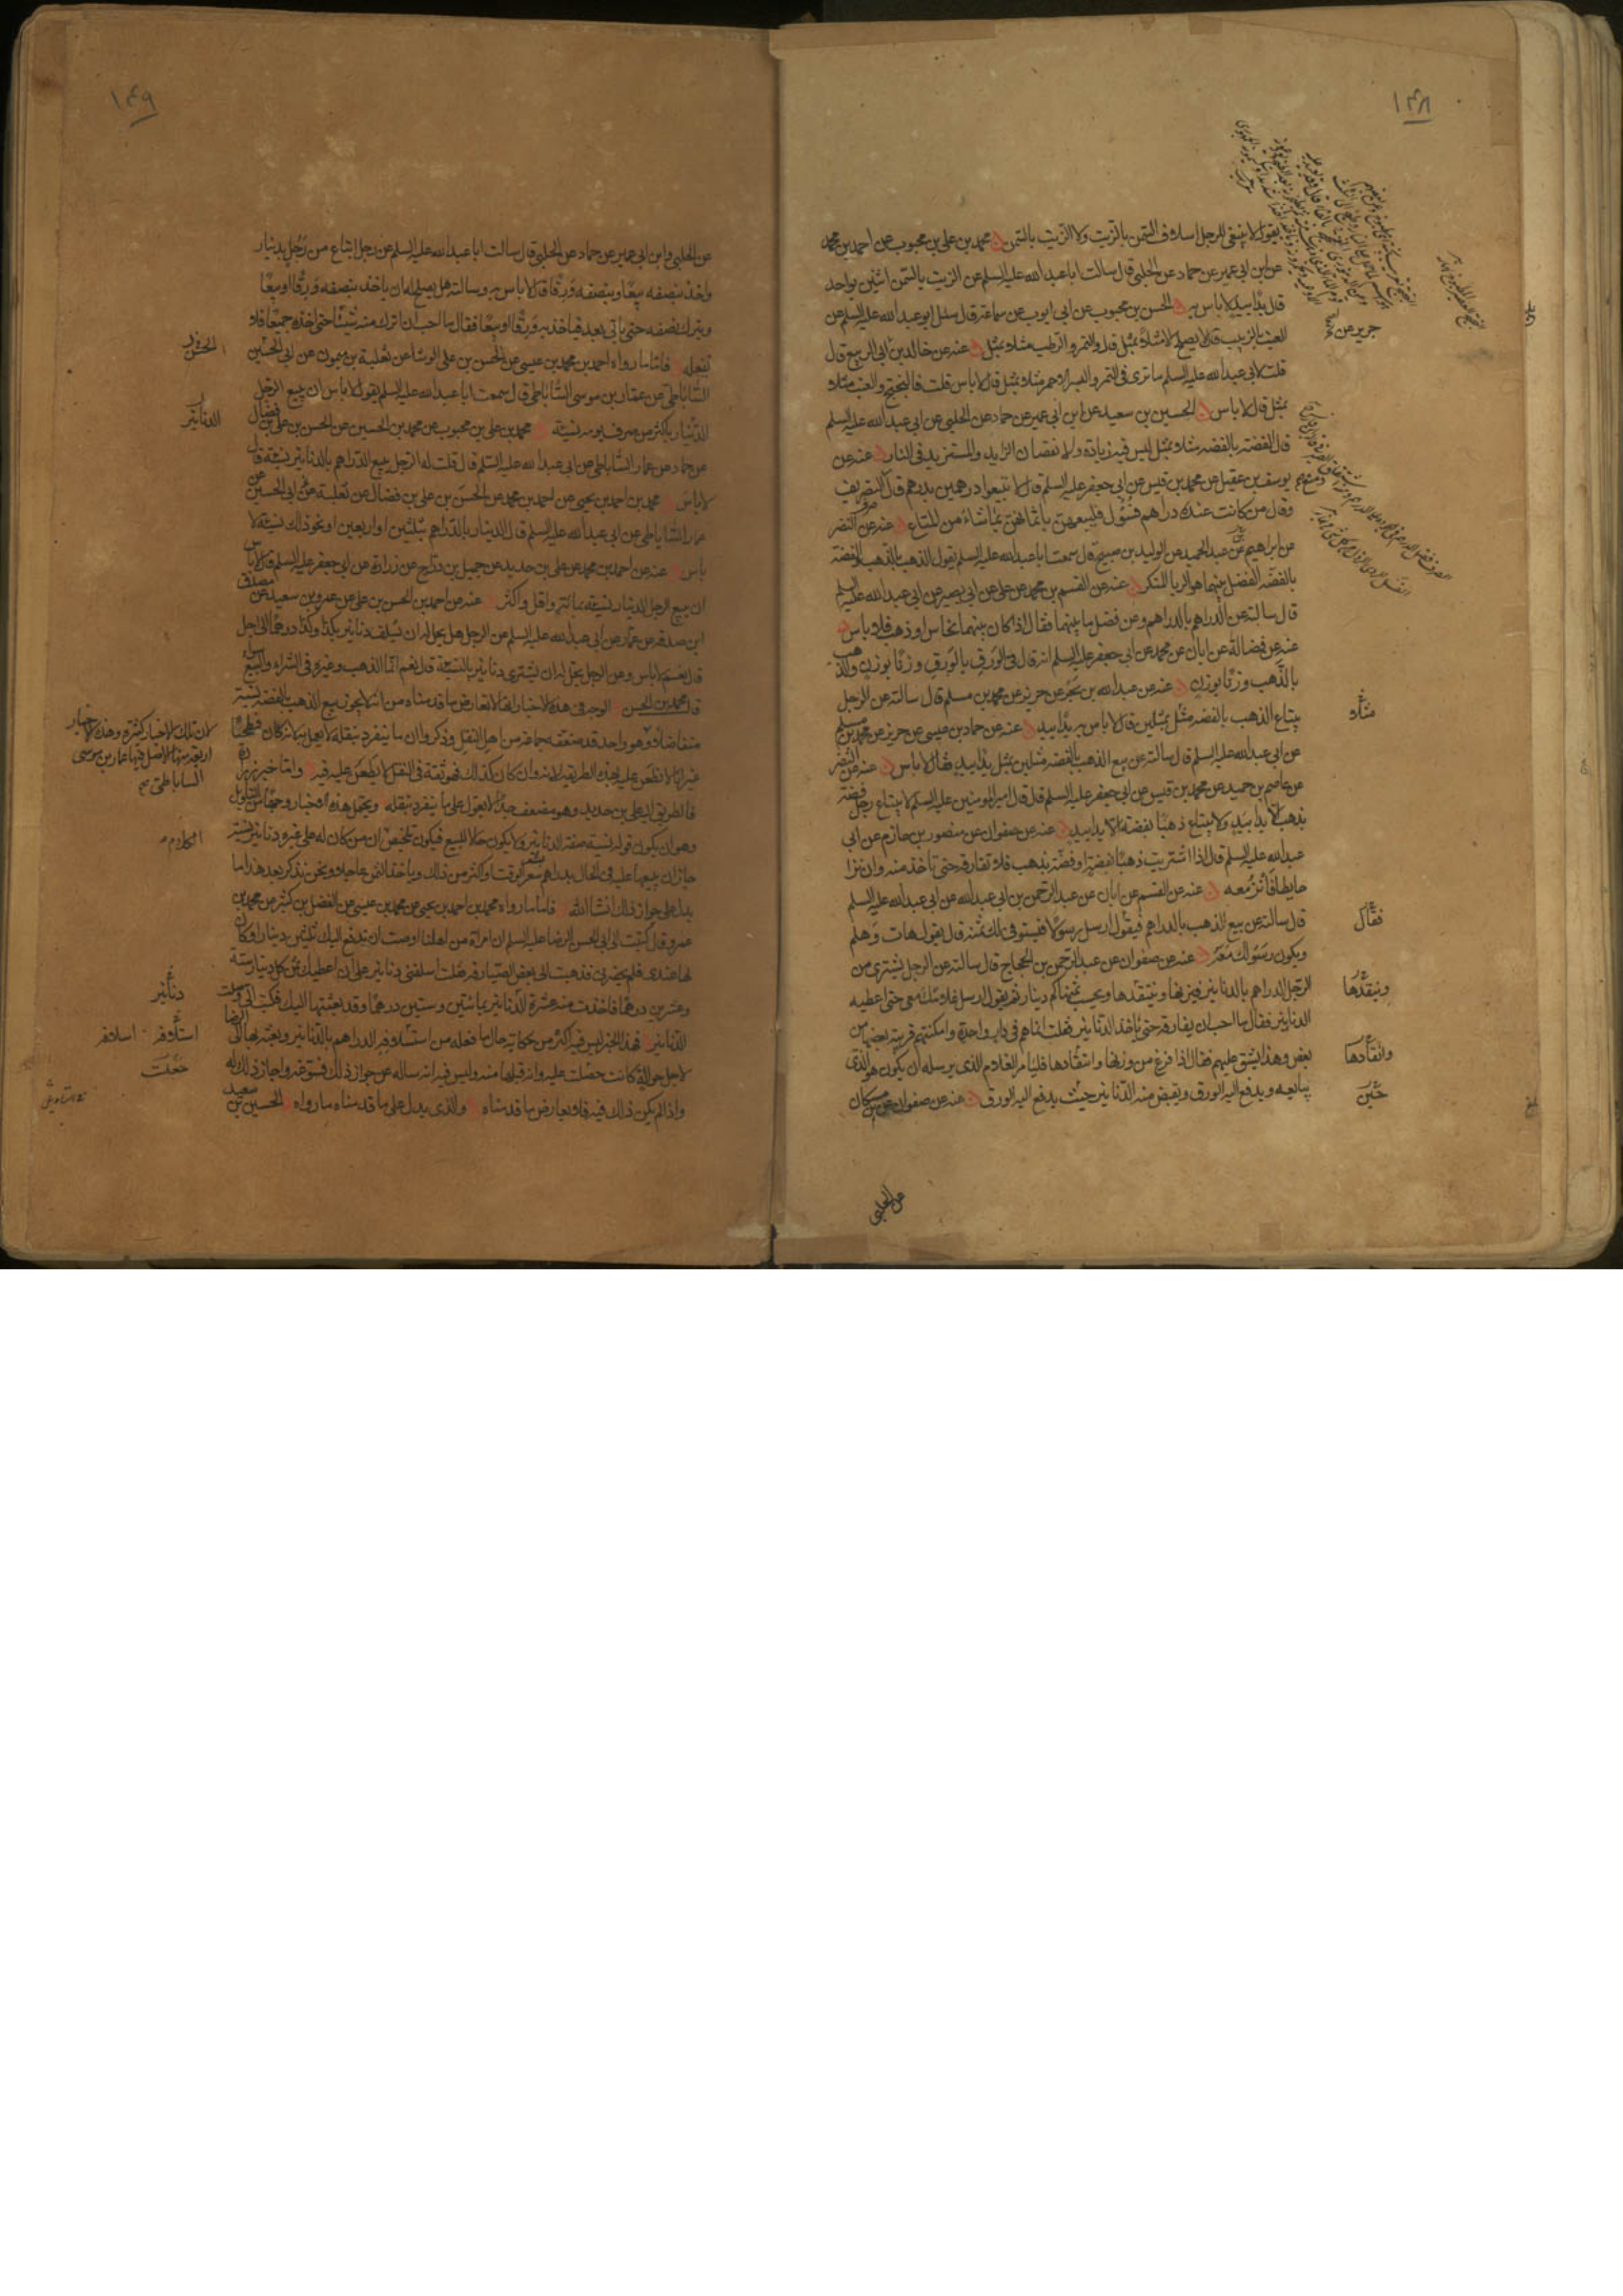 ١٤٨
يقول لا ينبغي للرجل اسلاف السمن بالزيت ولا الزيت بالسمن محمد بن علي بن محبوب عن احمد بن محمد
عن ابن ابي عمير عن حماد عن الحلبي قال سالت ابا عبد الله عليه السلم عن الزيت بالسمن اثنين بواحد
قال يدا بيد لا باس به الحسن بن محبوب عن ابي ايوب عن سماعة قال سئل ابو عبد الله عليه السلم عن
العنب بالزبيب قال لا يصلح الا مثلا بمثل قلت والتمر والرطب مثلا بمثل عنه عن خالد عن ابي الربيع قال
قلت لابي عبد الله عليه السلم ما ترى في التمر والبسر الاحمر مثلا بمثل قال لا باس قلت فالبختج والعنب مثلا
بمثل قال لا باس الحسين بن سعيد عن ابن ابي عمير عن حماد عن الحلبي عن ابي عبد الله عليه السلم
قال الفضة بالفضة مثلا بمثل ليس فيه زيادة ولا نقصان الزايد والمستزيد في النار عنه عن
يوسف بن عقيل عن محمد بن قيس عن ابي جعفر عليه السلم قال لا تبيعوا درهمين بدرهم قال
وقال من كانت عنده دراهم فسول فليبعهن باثمانهن بما شاء من المتاع عنه عن النضر
عن ابراهيم عن عبد الحميد عن الوليد بن صبيح قال سمعت ابا عبد الله عليه السلم يقول الذهب بالذهب والفضة
بالفضة الفضل بينهما هو الربا المنكر عنه عن القسم بن محمد عن علي عن ابي بصير عن ابي عبد الله عليه السلم
قال سالته عن الدراهم بالدراهم وعن فضل ما بينهما فقال اذا كان بينهما نحاس او ذهب فلا باس
عنه عن فضالة عن ابان عن محمد عن ابي جعفر عليه السلم انه قال في الورق بالورق وزنا بوزن والذهب
بالذهب وزنا بوزن عنه عن عبد الله بن بحر عن حريز عن محمد بن مسلم قال سالته عن الرجل
يبتاع الذهب بالفضة مثل بمثلين قال لا باس به يدا بيد عنه عن حماد بن عيسى عن حريز عن محمد بن مسلم
عن ابي عبد الله عليه السلم قال سالته عن بيع الذهب بالفضة مثلين بمثل يدا بيد فقال لا باس عنه عن النضر
عن عاصم بن حميد عن محمد بن قيس عن ابي جعفر عليه السلم قال قال امير المومنين عليه السلم لا يبتاع رجل فضة
بذهب الا يدا بيد ولا يبتاع ذهبا بفضة الا يدا بيد عنه عن صفوان عن منصور بن حازم عن ابي
عبد الله عليه السلم قال اذا اشتريت ذهبا بفضة او فضة بذهب فلا تفارقه حتى تاخذ منه وان نزا
حايطا فانز معه عنه عن القسم عن ابان عن عبد الرحمن بن ابي عبد الله عن ابي عبد الله عليه السلم
قال سالته عن بيع الذهب بالدراهم فيقول ارسل رسولا فيستوفي لك ثمنه قال يقول هات وهلم
ويكون رسولك معه عنه عن صفوان عن عبد الرحمن بن الحجاج قال سالته عن الرجل يشتري من
الرجل الدراهم بالدنانير فيزنها وينقدها ويحسب ثمنها كم دينار ثم يقول ارسل غلامك معي حتى اعطيه
الدنانير فقال ما احب ان يفارقه حتى ياخذ الدنانير فقلت انما هم في دار واحدة وامكنتهم قريبة بعضها من
بعض وهذا يشق عليهم فقال اذا فرغ من وزنها وانتقادها فليامر الغلام الذي يرسله ان يكون هو الذي
يبايعه ويدفع اليه الورق ويقبض منه الدنانير حيث يدفع اليه الورق عنه عن صفوان عن ابن مسكان
جرير عن
مثلا
فقال
وينقدها
وانتقادها
حين
عن الحلبي
١٤٩
عن الحلبي وابن ابي عمير عن حماد عن الحلبي قال سالت ابا عبد الله عليه السلم عن رجل ابتاع من رجل بدينار
واخذ بنصفه بيعا وبنصفه ورقا قال لا باس به وسالته هل يصلح له ان ياخذ بنصفه ورقا او بيعا
ويترك نصفه حتى ياتي بعد فياخذ به ورقا او بيعا فقال ما احب ان اترك منه شيئا حتى اخذه جميعا فلا
تفعله فاما ما رواه احمد بن محمد بن عيسى عن الحسن بن علي الوشا عن ثعلبة بن ميمون عن ابي الحسين
الساباطي عن عمار بن موسى الساباطي قال سمعت ابا عبد الله عليه السلم يقول لا باس ان يبيع الرجل
الدينار باكثر من صرف يومه نسيئة محمد بن علي بن محبوب عن محمد بن الحسين عن الحسن بن علي بن فضال
عن حماد عن عمار الساباطي عن ابي عبد الله عليه السلم قال قلت له الرجل يبيع الدراهم بالدنانير نسيئة قال
لا باس محمد بن احمد بن يحيى عن احمد بن محمد عن الحسن بن علي بن فضال عن ثعلبة عن ابي الحسين عن
عمار الساباطي عن ابي عبد الله عليه السلم قال الدينار بالدراهم بثلثين او اربعين او نحو ذلك نسيئة لا
باس عنه عن احمد بن محمد عن علي بن حديد عن جميل بن دراج عن زرارة عن ابي جعفر عليه السلم قال لا باس
ان يبيع الرجل الدينار نسيئة بمائة واقل واكثر عنه عن احمد بن الحسن بن علي عن عمرو بن سعيد عن مصدق
ابن صدقة عن عمار عن ابي عبد الله عليه السلم عن الرجل هل يحل له ان يسلف دنانير بكذا وكذا درهما الى اجل
قال نعم لا باس وعن الرجل يحل له ان يشتري دنانير بالنسيئة قال نعم انما الذهب وغيره في الشراء والبيع سواء
قال محمد بن الحسن الوجه في هذه الاخبار انها لا تعارض ما قدمناه من انه لا يجوز بيع الذهب بالفضة نسيئة
متفاضلا وهو واحد قد ضعفه جماعة من اهل النقل وذكروا ان ما ينفرد بنقله لا يعمل به لانه كان فطحيا
غير انا لا نطعن عليه بهذه الطريقة لانه وان كان كذلك فهو ثقة في النقل لا يطعن عليه فيه واما خبر زرارة
فالطريق اليه علي بن حديد وهو مضعف جدا لا يعول على ما ينفرد بنقله ويحتمل هذه الاخبار وجها من التاويل
وهو ان يكون قوله نسيئة صفة الدنانير ولا يكون حالا للبيع فيكون تلخيصه ان من كان له على غيره دنانير نسيئة
جاز ان يبيعها عليه في الحال بدراهم بسعر الوقت او اكثر من ذلك وياخذ الثمن عاجلا ونحن نذكر بعد هذا ما
يدل على جواز ذلك انشا الله فاما ما رواه محمد بن احمد بن يحيى عن محمد بن عيسى عن الفضل بن كثير عن محمد بن
عمرو قال كتبت الى ابي الحسن الرضا عليه السلم ان امراة من اهلنا اوصت ان يدفع اليك ثلثين دينارا وكان
لها عندي فلم يحضرني فذهبت الى بعض الصيارفة فقلت اسلفني دنانير على ان اعطيك ثمن كل دينار ستة
وعشرين درهما فاخذت منه عشرة الدنانير بمائتين وستين درهما وقد بعثتها اليك فكتب الي وصلت
الدنانير فهذا الخبر ليس فيه اكثر من حكاية حال ما فعله من استسلافه الدراهم بالدنانير وبعثه بها الى الرضا
لاجل حوالة كانت حصلت عليه وانه قبلها منه وليس فيه انه ساله عن جواز ذلك فسوغه واجاز ذلك له
واذا لم يكن ذلك فيه فلا يعارض ما قدمناه والذي يدل على ما قدمناه ما رواه الحسين بن سعيد
الحسن
الدنانير
لان تلك الاخبار كثيرة وهذه الاخبار
اربعة منها الاصل فيها عمار بن موسى
الساباطي
دنانير
استلافه اسلافه
حصلت